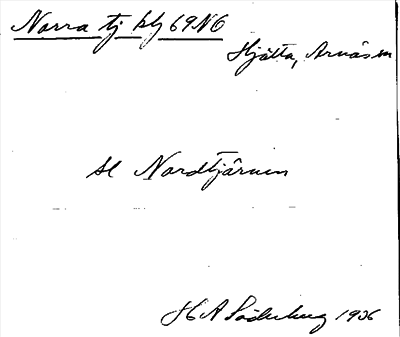 Norra tj blj 69 NO
Hjälta, Arnäs sn
se Nordtjärnen
H A Söderberg 1936